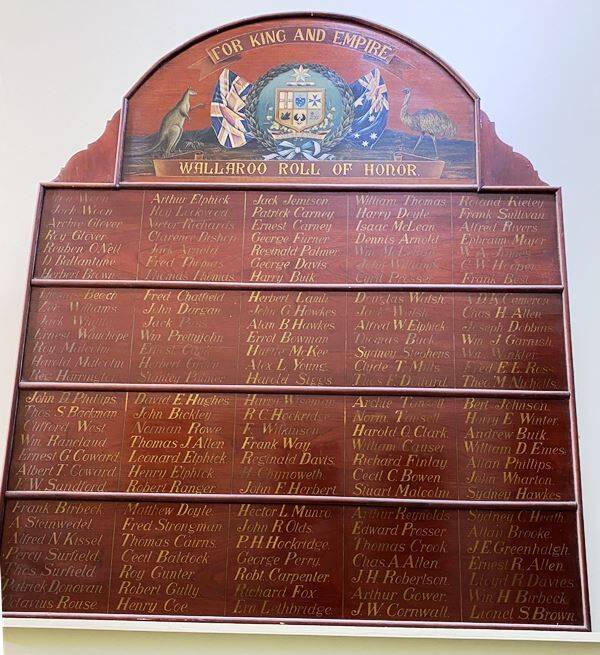 FOR KING AND EMPIRE
WALLAROO ROLL OF HONOR
Woon Arthur Elphick Jack Jemison William Thomas Roland Kieley
Jack Woon Roy Lockwood Patrick Carney Harry Doyle Frank Sullivan
Archie Glover Victor Richards Ernest Carney Isaac McLean Alfred Rivers
Roy Glover Clarence Bishop George Furner Dennis Arnold Ephraim Major
Reuben O'Neil Jack Arnold Reginald Palmer Wm McLean
D. Ballantune Fred Thomas George Davis John C.W. Hooper
Herbert Brown Thomas Harry Buik Cyril Frank Best
Beech Fred Chatfield Herbert Lamb Douglas Walsh A.D.K. Cameron
Williams John Dorgan John G Hawkes Walsh Chas H. Allen
Jack Jack Alan B Hawkes Alfred W Elphick Joseph Dobbins
Ernest Wauchope Wm Prettyjohn Errol Bowman Thomas Buck Wm J Garnish
Roy Malcolm Ernest McKee Sydney Stephens Wm Winkler
Harold Malcolm Herbert Alex L Young Clyde T Mills Fred E.E. Ross
Harold Siggs Theo M Nicholls
John D Phillips David E Hughes Harry Archie Bert Johnson
Thos S Beckman John Bickley R C Hockridge Norm Harry E Winter
Clifford West Norman Rowe F Wilkinson Harold O Clark Andrew Buik
Wm Ranclaud Thomas J Allen Frank Way William Causer William D. Eines
Ernest G Coward Leonard Elphick Reginald Davis Richard Finlay Allan Phillips
Albert T Coward Henry Elphick H Chynoweth Cecil C. Bowen John Wharton
F. W. Sandford Robert Ranger John F Herbert Stuart Malcolm Sydney Hawkes
Frank Birbeck Matthew Doyle Hector L Munro Arthur Reynolds Sydney C Heath
A Steinwedel Fred Strongman John R Olds Edward Prosser Allan Brooke
Alfred N Kissel Thomas Cairns P.H. Hockridge Thomas Crook J.E Greenhalgh
Percy Surfield Cecil Baldock George Perry Chas A Allen Ernest R Allen
Thos Surfield Roy Gunter Robt Carpenter J.H Robertson Lloyd R Davies
Patrick Donovan Robert Gully Richard Fox Arthur Gower Wm H Birbeck
Octavius Rouse Henry Coe Ern Lethbridge J.W Cornwall Lionel S Brown